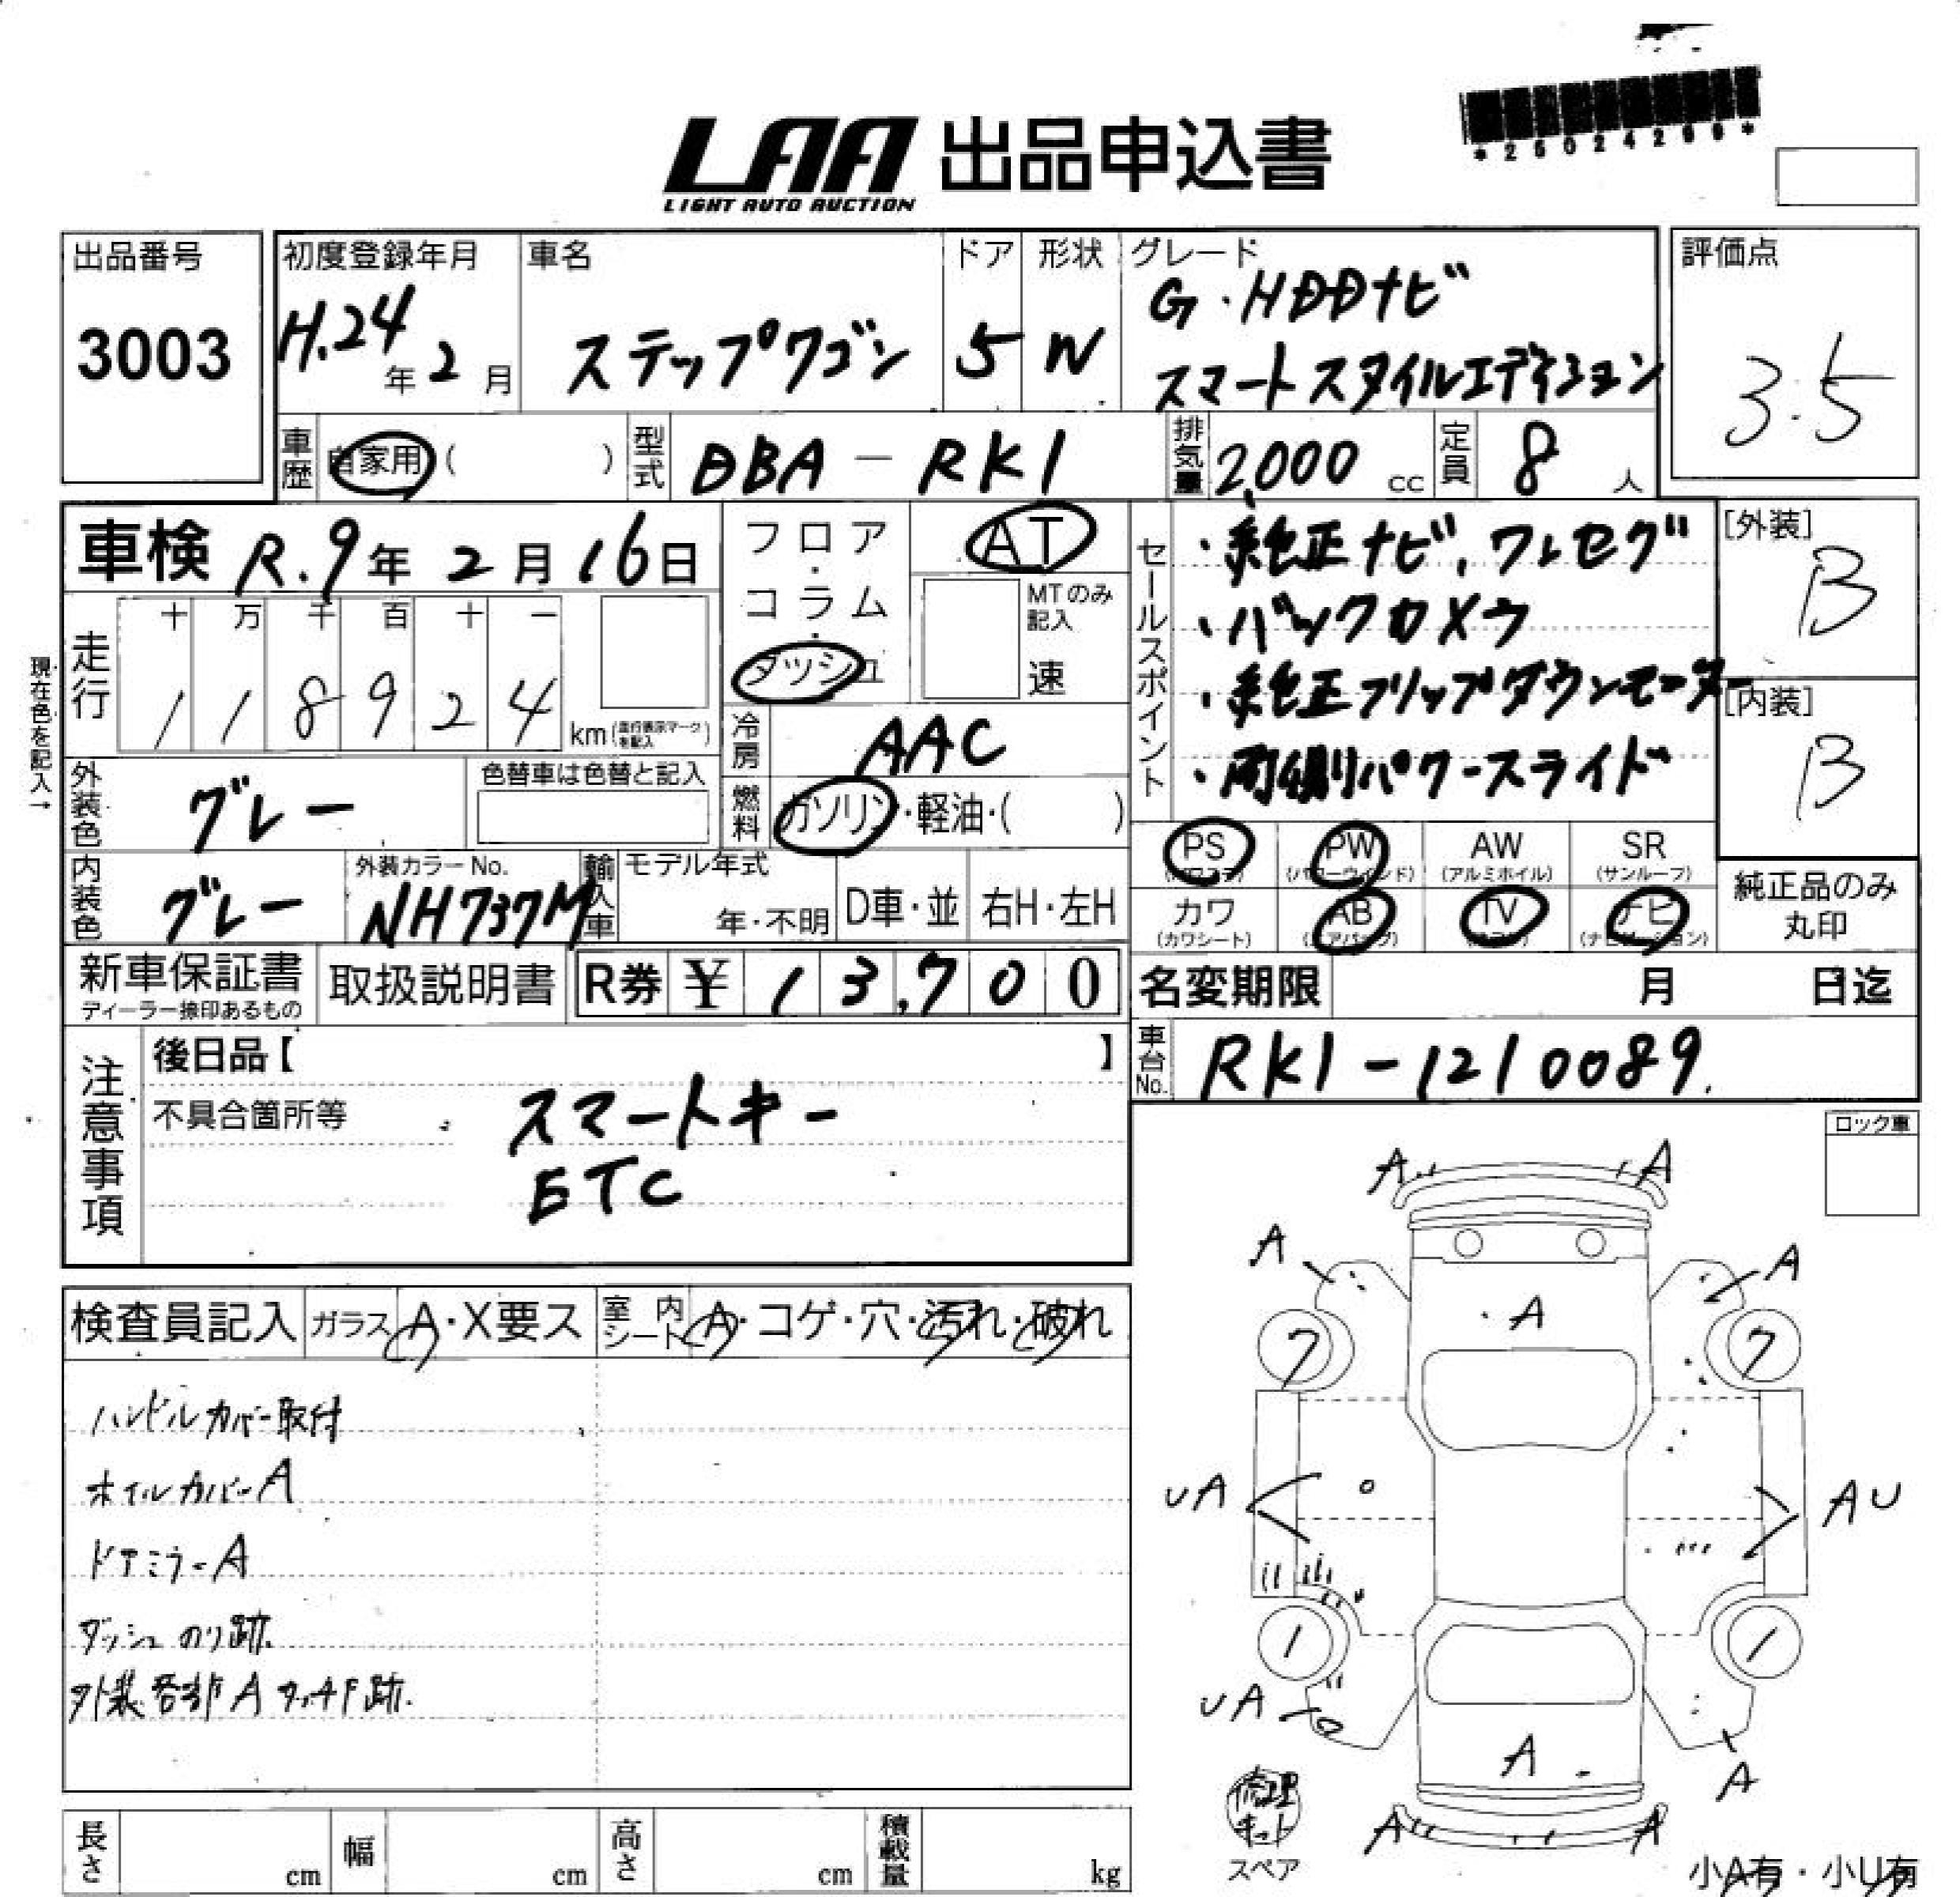 *25024299*
LAA 出品申込書
LIGHT AUTO AUCTION
出品番号
3003
初度登録年月
H.24年2月
車名
ステップワゴン
ドア
5
形状
W
グレード
G・HDDナビ
スマートスタイルエディション
評価点
3.5
車歴 自家用 ( )
型式 DBA-RK1
排気量 2,000 cc
定員 8 人
車検 R.9年2月16日
フロア・コラム・ダッシュ
AT
MTのみ記入
速
セールスポイント
・純正ナビ,ワンセグ
・バックカメラ
・純正フリップダウンモーター
・両側パワースライド
[外装]
B
[内装]
B
現在色を記入→
走行
十 万 千 百 十 一
1 1 8 9 2 4 km (走行表示マークを記入)
冷房 AAC
外装色 グレー
色替車は色替と記入
燃料 ガソリン・軽油・( )
PS (パワステ)
PW (パワーウィンド)
AW (アルミホイル)
SR (サンルーフ)
カワ (カワシート)
AB (エアバッグ)
TV (テレビ)
ナビ (ナビゲーション)
純正品のみ丸印
内装色 グレー
外装カラーNo.
NH737M
輸入車
モデル年式
年・不明
D車・並
右H・左H
新車保証書
ディーラー捺印あるもの
取扱説明書
R券 ¥ 1 3,7 0 0
名変期限 月 日迄
車台No. RK1-1210089.
注意事項
後日品【 】
不具合箇所等
スマートキー
ETC
ロック車
検査員記入
ガラス A・X要ス
室内シート A・コゲ・穴・汚れ・破れ
ハンドルカバー取付
ホイルカバーA
ドアミラーA
ダッシュのり跡.
外装各部Aタッチ跡.
A A
A A
A
7 7
UA AU
1 1
UA
A
A
A A
修理キット
スペア
小A有・小U有
長さ cm
幅 cm
高さ cm
積載量 kg